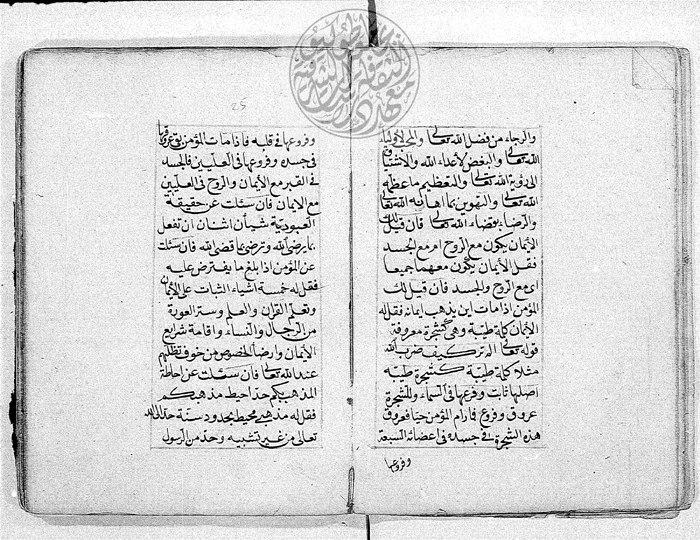 والرجاء من فضل الله تعالى والمحبة لاولياء
الله تعالى والبغض لأعداء الله والاشتياق
الى رؤية الله تعالى والتعظيم ما عظمه
الله تعالى والتهوين بما اهانه الله تعالى
والرضاء بقضاء الله تعالى فان قيل لك
الأيمان يكون مع الروح ام مع الجسد
فقل الأيمان يكون معهما جميعا
اى مع الروح والجسد فان قيل لك
المؤمن اذا مات اين يذهب ايمانه فقل له
الأيمان كلمة طيبة وهى كشجرة معروفة
قوله تعالى الم تر كيف ضرب الله
مثلا كلمة طيبة كشجرة طيبة
اصلها ثابت وفرعها فى السماء وللشجرة
عروق وفروع فما دام المؤمن حيا فعروق
هذه الشجرة فى جسده فى اعضائه السبعة
وفروعها
25
وفروعها فى قلبه فاذا مات المؤمن بقى عروقها
فى جسده وفروعها فى العليين فالجسد
فى القبر مع الأيمان والروح فى العليين
مع الايمان فان سئلت عن حقيقة
العبودية شيأن اثنان ان تفعل
بما يرضى الله وترضى بما قضى الله فان سئلت
عن المؤمن اذا بلغ ما يفترض عليه
فقل له خمسة اشياء الثبات على الأيمان
وتعلم القرآن والعلم وستر العورة
من الرجال والنساء واقامة شرايع
الأيمان وارضاء الخصوص من خوف
عند الله تعالى فان سئلت عن احاطة
المذهب كم حد احيط مذهبكم
فقل له مذهبى محيط بحدود ستة حد الى الله
تعالى من غير تشبيه وحد من الرسول